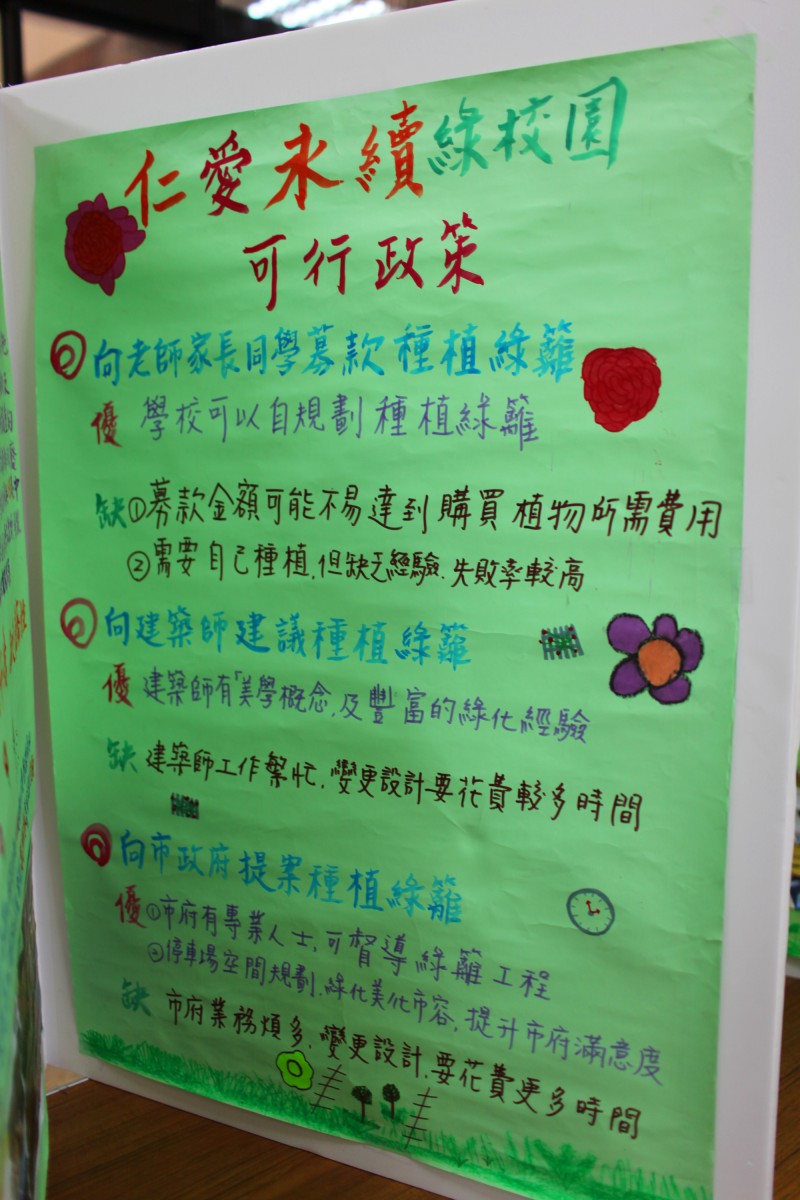 仁愛永續綠校園
可行政策
向老師家長同學募款種植綠籬
優 學校可以自規劃種植綠籬
缺①募款金額可能不易達到購買植物所需費用
②需要自己種植,但缺乏經驗.失敗率較高
向建築師建議種植綠籬
優 建築師有「美學概念,及豐富的綠化經驗
缺 建築師工作繁忙,變更設計要花費較多時間
向市政府提案種植綠籬
優①市府有專業人士,可督導綠籬工程
②停車場空間規劃.綠化美化市容,提升市府滿意度
缺 市府業務煩多,變更設計.要花費更多時間